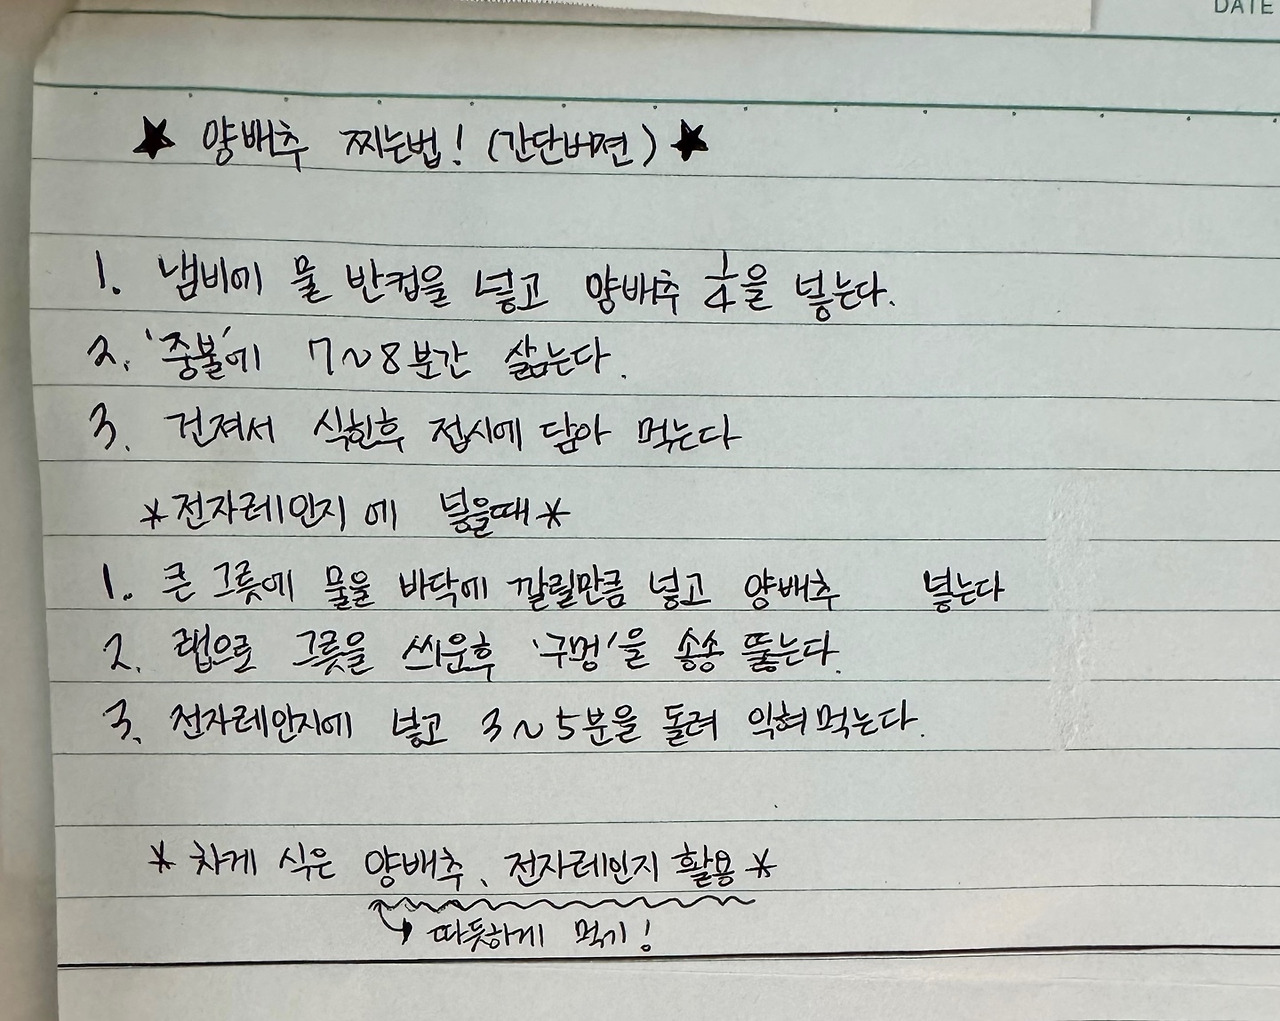 DATE
★ 양배추 찌는법! (간단버젼) ★
1. 냄비에 물 반컵을 넣고 양배추 1/4을 넣는다.
2. '중불'에 7~8분간 삶는다.
3. 건져서 식힌후 접시에 담아 먹는다
*전자레인지에 넣을때*
1. 큰 그릇에 물을 바닥에 깔릴만큼 넣고 양배추 넣는다
2. 랩으로 그릇을 씌운후 '구멍'을 송송 뚫는다.
3. 전자레인지에 넣고 3~5분을 돌려 익혀먹는다.
* 차게 식은 양배추, 전자레인지 활용 *
↳ 따듯하게 먹기!